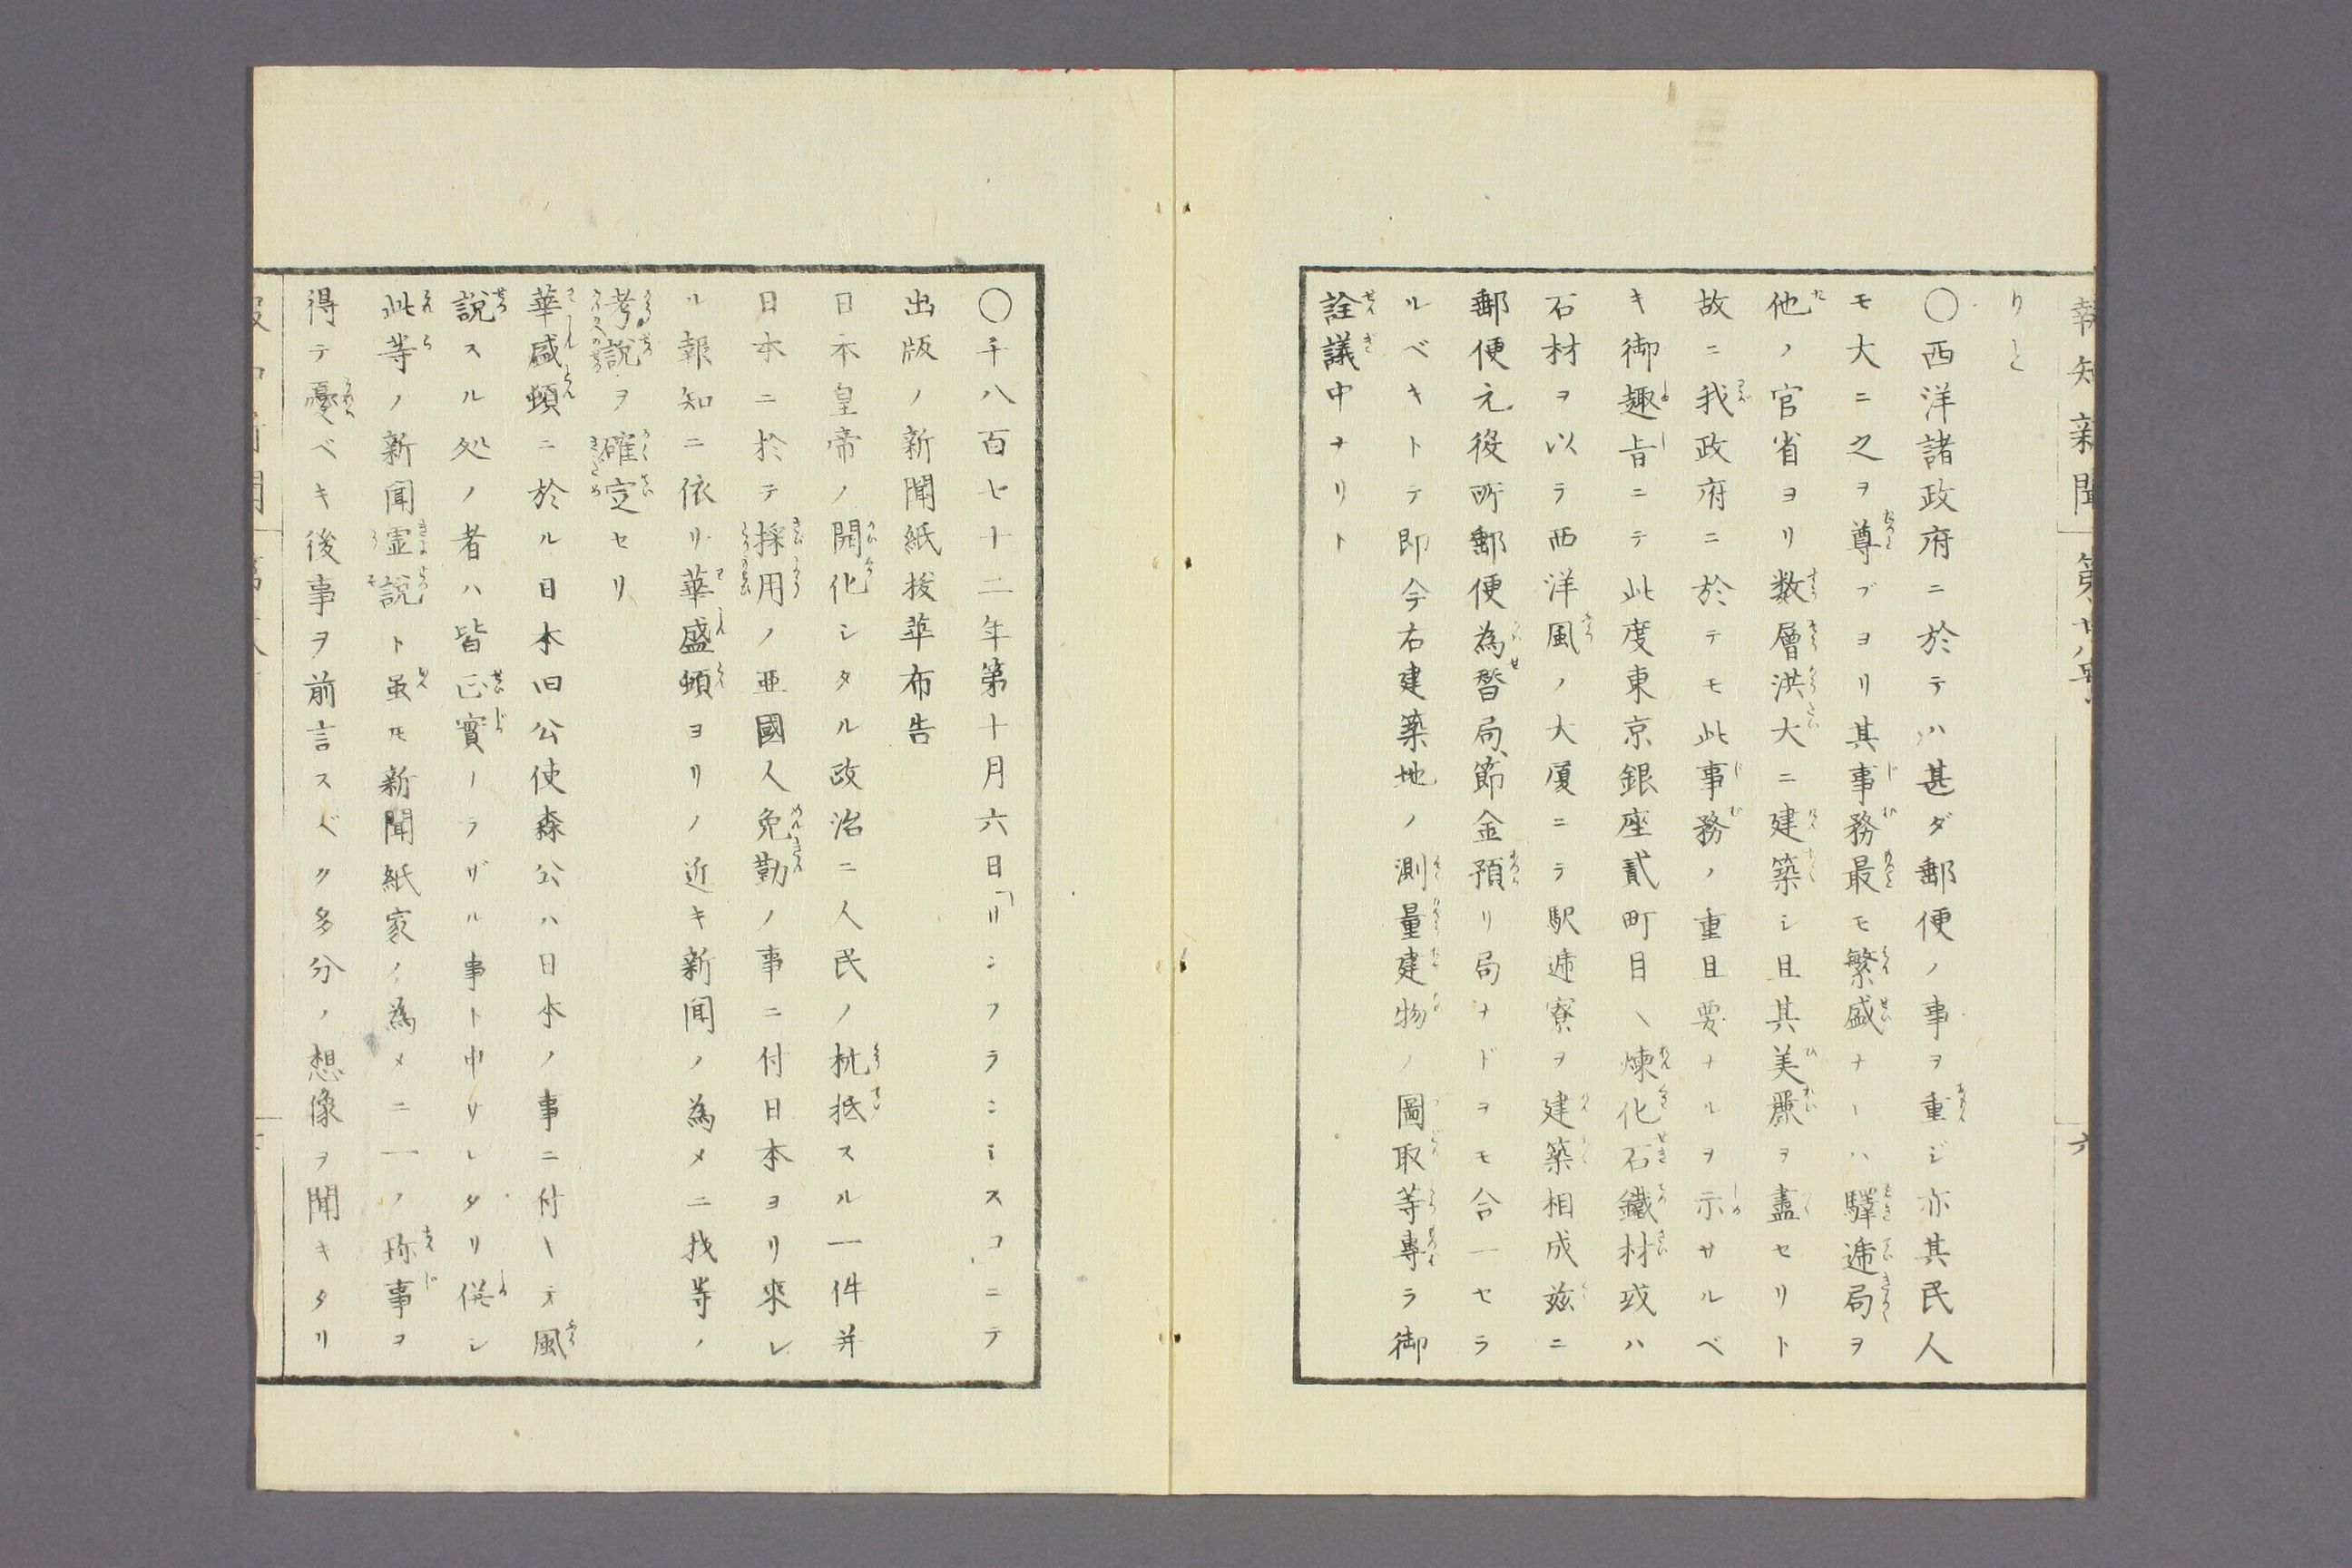 報知新聞 第廿八号 六
りと
〇西洋諸政府ニ於テハ甚ダ郵便ノ事ヲ重ジ亦其民人
モ大ニ之ヲ尊ブヨリ其事務最モ繁盛ナーハ驛逓局ヲ
他ノ官省ヨリ数層洪大ニ建築シ且其美麗ヲ盡セリト
故ニ我政府ニ於テモ此事務ノ重且要ナルヲ示サルベ
キ御趣旨ニテ此度東京銀座貳町目ヘ煉化石鐵材或ハ
石材ヲ以テ西洋風ノ大厦ニテ駅逓寮ヲ建築相成兹ニ
郵便元役所郵便為替局、節金預リ局ナドヲモ合一セラ
ルベキトテ即今右建築地ノ測量建物ノ圖取等専ラ御
詮議中ナリト
〇千八百七十二年第十月六日「サンフランシスコニテ
出版ノ新聞紙拔萃布告
日本皇帝ノ開化シタル政治ニ人民ノ抗抵スル一件并
日本ニ於テ採用ノ亜國人免勤ノ事ニ付日本ヨリ來レ
ル報知ニ依リ華盛頓ヨリノ近キ新聞ノ為メニ我等ノ
考説ヲ確定セリ
華盛頓ニ於ル日本旧公使森公ハ日本ノ事ニ付キテ風
説スル処ノ者ハ皆正實ノラザル事ト申サレタリ併シ
此等ノ新聞虚説ト虽モ新聞紙家ノ為メニ一ノ珎事ヲ
得テ憂ベキ後事ヲ前言スベク多分ノ想像ヲ聞キタリ